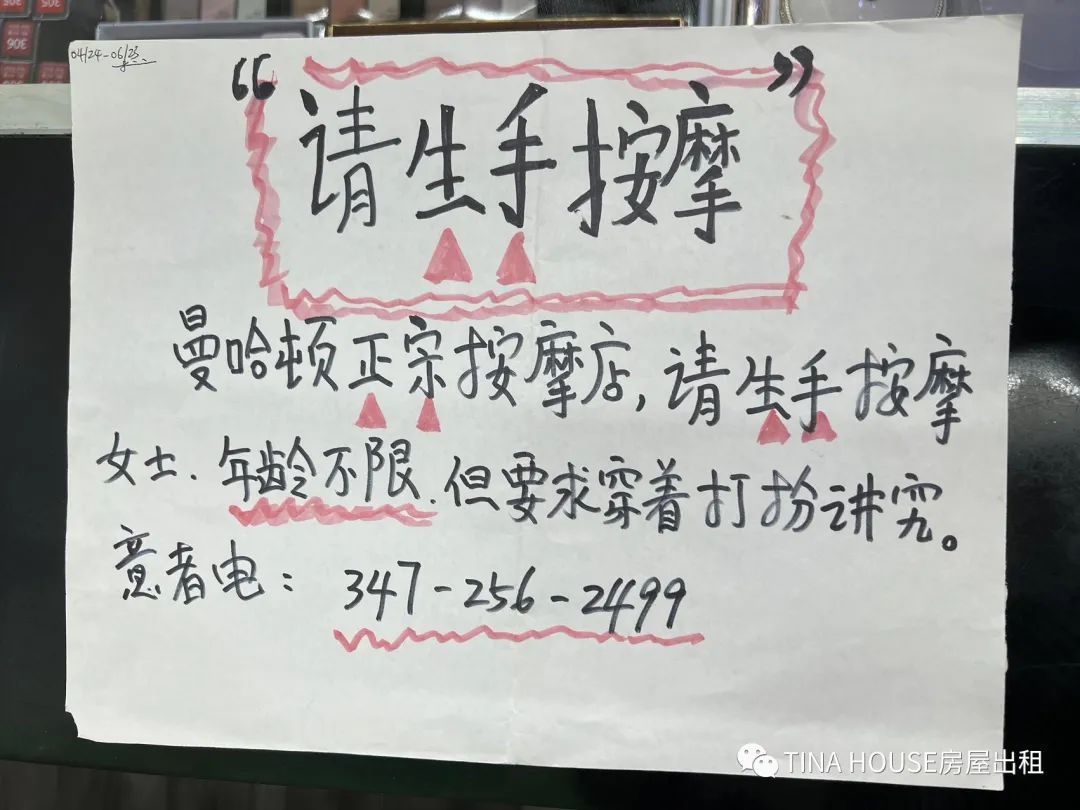 04/24-06/23
“请生手按摩”
曼哈顿正宗按摩店,请生手按摩
女士.年龄不限.但要求穿着打扮讲究。
意者电：347-256-2499
TINA HOUSE房屋出租